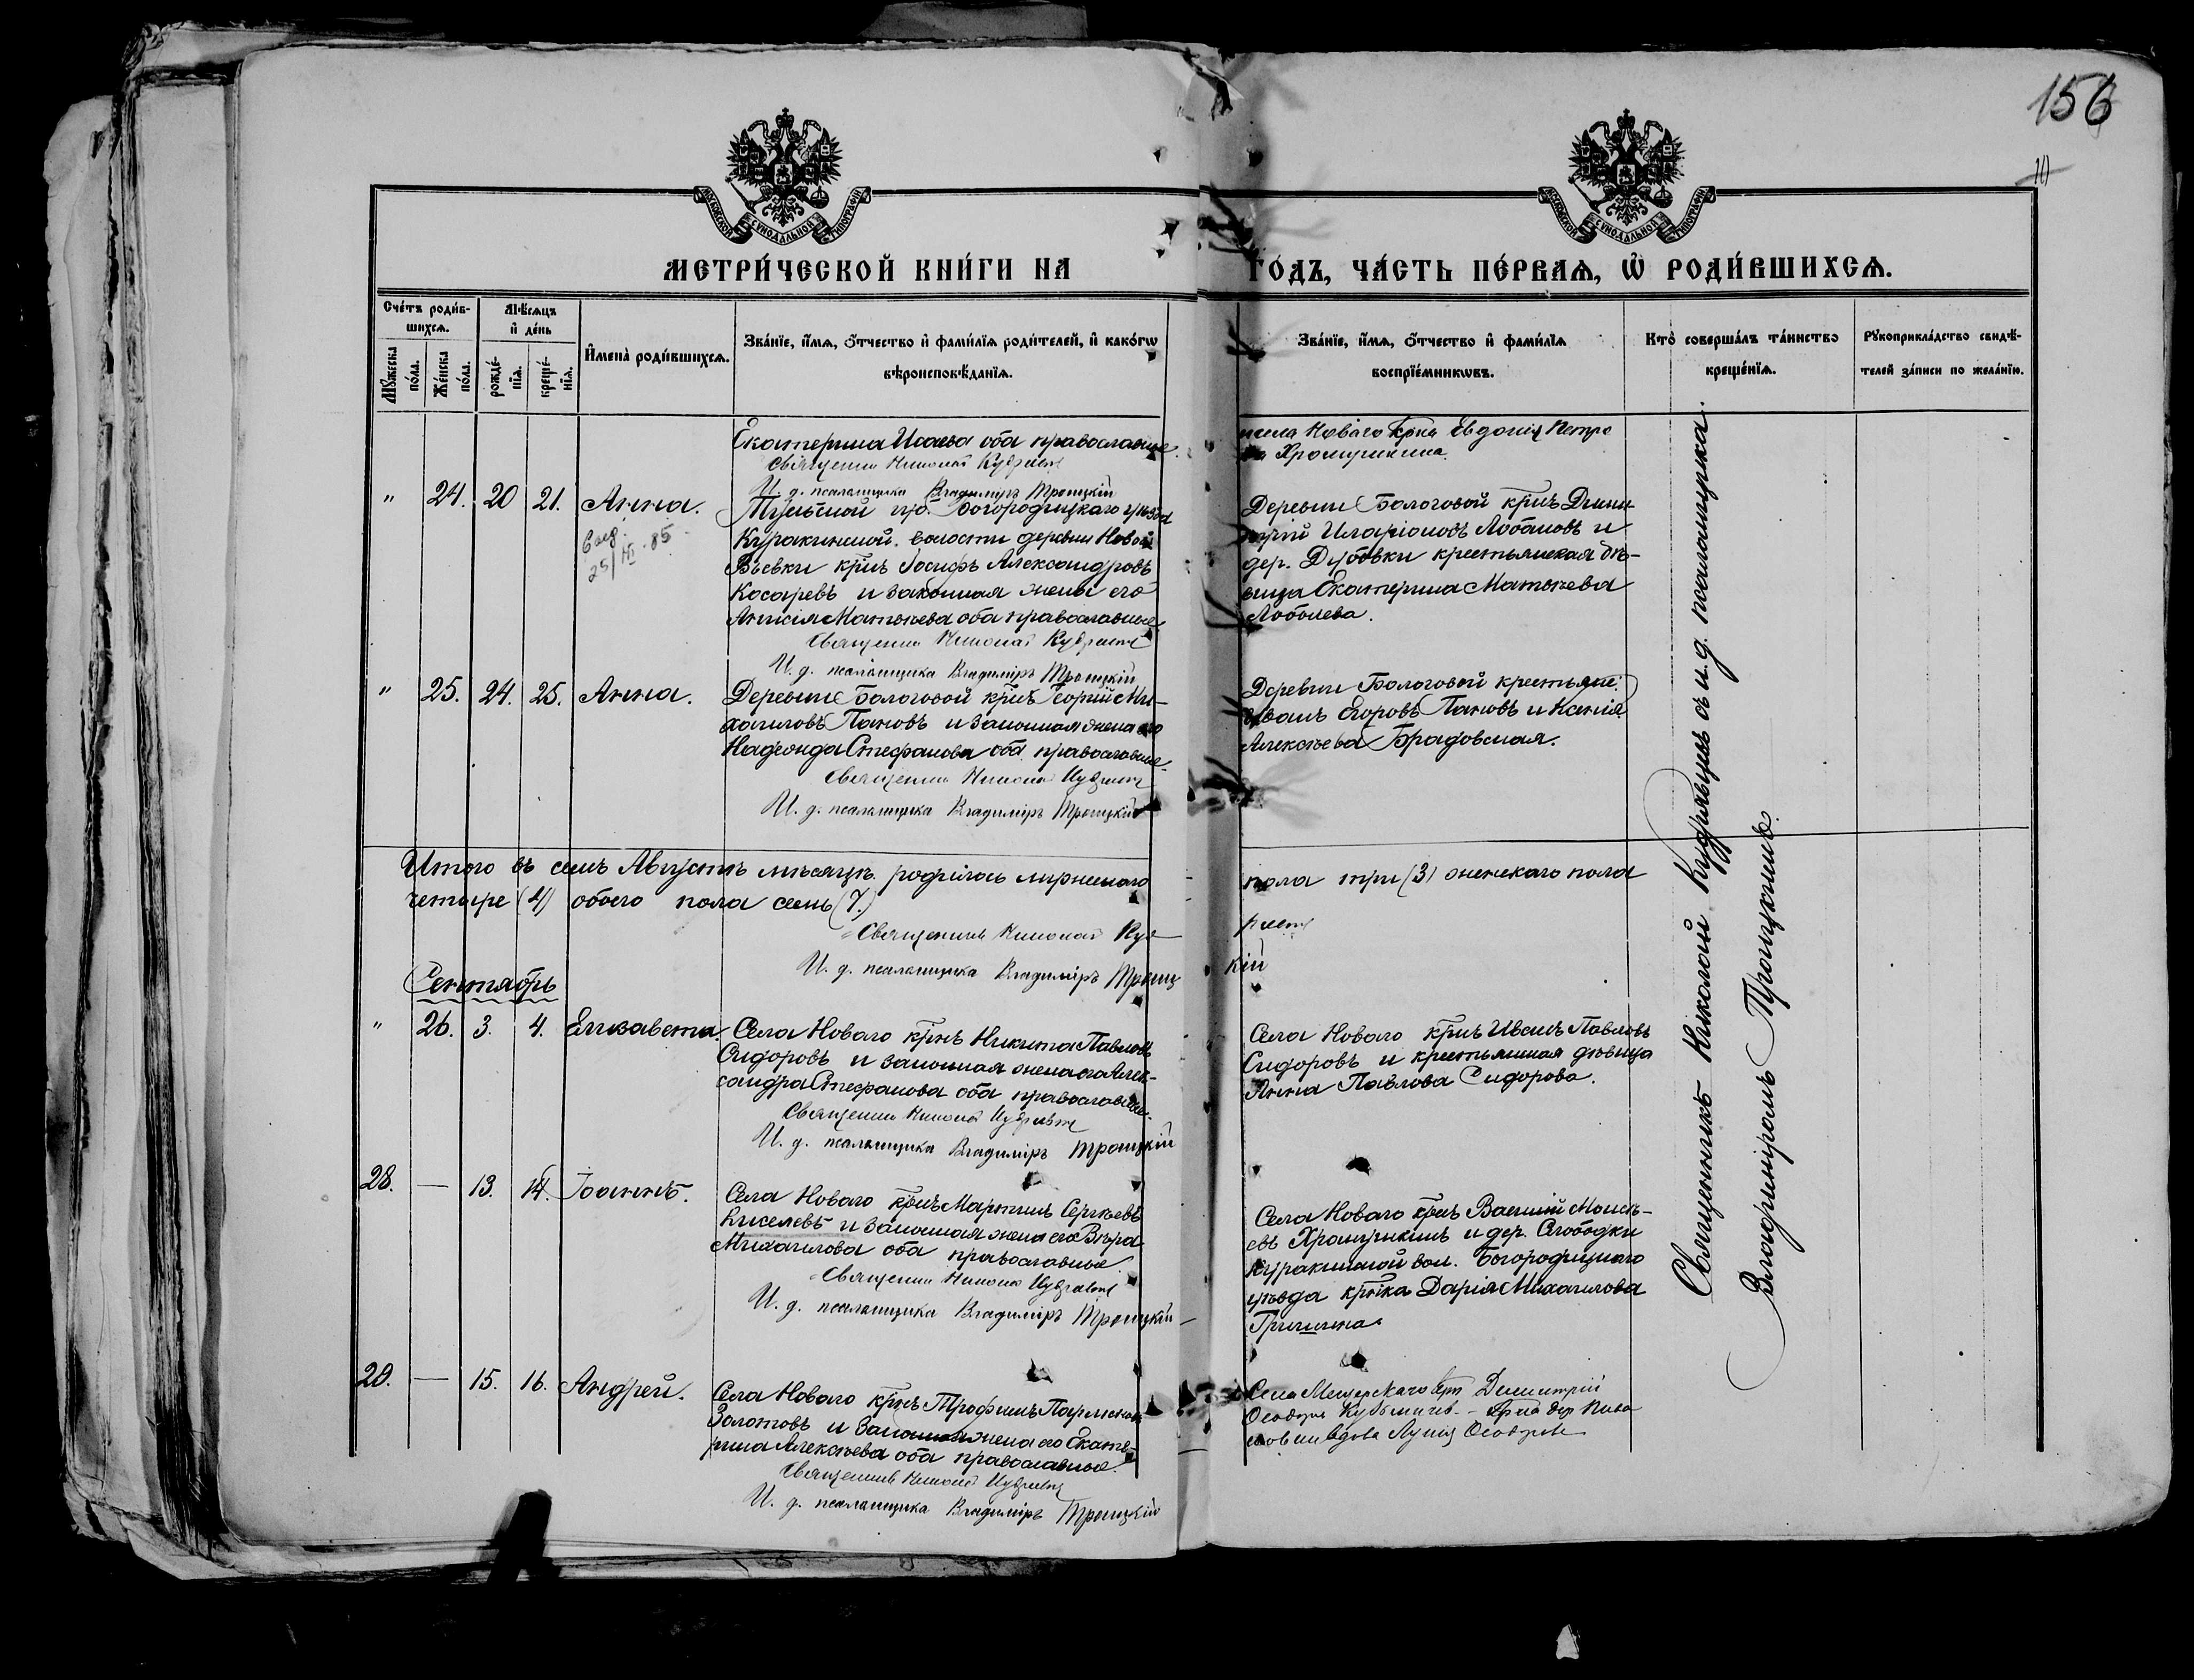 156
МЕТРИ́ЧЕСКОЙ КНИ́ГИ НА ГО́ДЪ, ЧА́СТЬ ПЕ́РВАЯ, Ѡ РОДИ́ВШИХСЯ.
Сче́тъ роди́вшихся.
Мѹ́жеска по́ла.
Же́нска по́ла.
Мѣ́сяцъ и де́нь
рожде́нїя.
креще́нїя.
И҆мена̀ роди́вшихся.
Зва́нїе, и҆́мя, ѻ҆́тчество и҆ фами́лїя роди́телей, и҆ како́гѡ вѣроисповѣ́данїя.
Зва́нїе, и҆́мя, ѻ҆́тчество и҆ фами́лїя воспрїе́мникѡвъ.
Кто̀ соверша́лъ та́инство креще́нїя.
Рꙋкоприкла́дство свидѣ́телей за́писи по жела́нїю.
Екатерина Исаева оба православные.
Священник Николай
И. д. псаломщика Владиміръ Троицкій
села Новаго Евдокия Петро
Хромушкина.
" 24. 20 21. Анна.
Тульской губ. Богородицкаго уѣзда
Куракинской волости деревни Новой
Вьевки крнъ Іосифъ Александровъ
Косаревъ и законная жена его
Матвѣева оба православные
Священник Николай
И. д. псаломщика Владиміръ Троицкій
Деревни Бологовой крнъ Дими-
трій Иларіоновъ Лобановъ и
дер. Дубовки крестьянская дѣ-
вица Екатерина Матвѣева
" 25. 24. 25. Анна.
Деревни Бологовой крнъ Георгій Ми-
хаиловъ Пановъ и законная жена его
Надежда Стефанова оба православные
Священник Николай
И. д. псаломщика Владиміръ Троицкій
Деревни Бологовой крестьяне:
Иванъ Егоровъ Пановъ и Ксенія
Алексѣева Брадовская.
Итого въ семъ Августѣ мѣсяцѣ родилось мужескаго пола три (3) женскаго пола
четыре (4) обоего пола семь (7.)
Священникъ Николай
И. д. псаломщика Владиміръ Троицкій
Сентябрь
" 26. 3. 4. Елизавета.
Села Новаго крнъ Никита Павловъ
Сидоровъ и законная жена его Алек-
сандра Стефанова оба православные.
Священник Николай
И. д. псаломщика Владиміръ Троицкій
Села Новаго крнъ Иванъ Павловъ
Сидоровъ и крестьянская дѣвица
Анна Павлова Сидорова.
28. — 13. 14. Іоаннъ.
Села Новаго крнъ Мартинъ Сергѣевъ
Киселевъ и законная жена его Вѣра
Михаилова оба православные
Священник Николай
И. д. псаломщика Владиміръ Троицкій
Села Новаго крнъ Василій Моисѣ-
евъ Хромушкинъ и дер. Слободки
Куракинской вол. Богородицкаго
уѣзда крнка Дарія Михаилова
Гришина.
29. — 15. 16. Андрей.
Села Новаго крнъ Трофимъ
Золотовъ и законная жена его Екате-
рина Алексѣева оба православные.
Священникъ Николай
И. д. псаломщика Владиміръ Троицкій
Села Мещерскаго Димитрій
вдова
Священникъ Николай Кудрявцевъ съ и. д. псаломщика
Владиміромъ Троицкимъ.